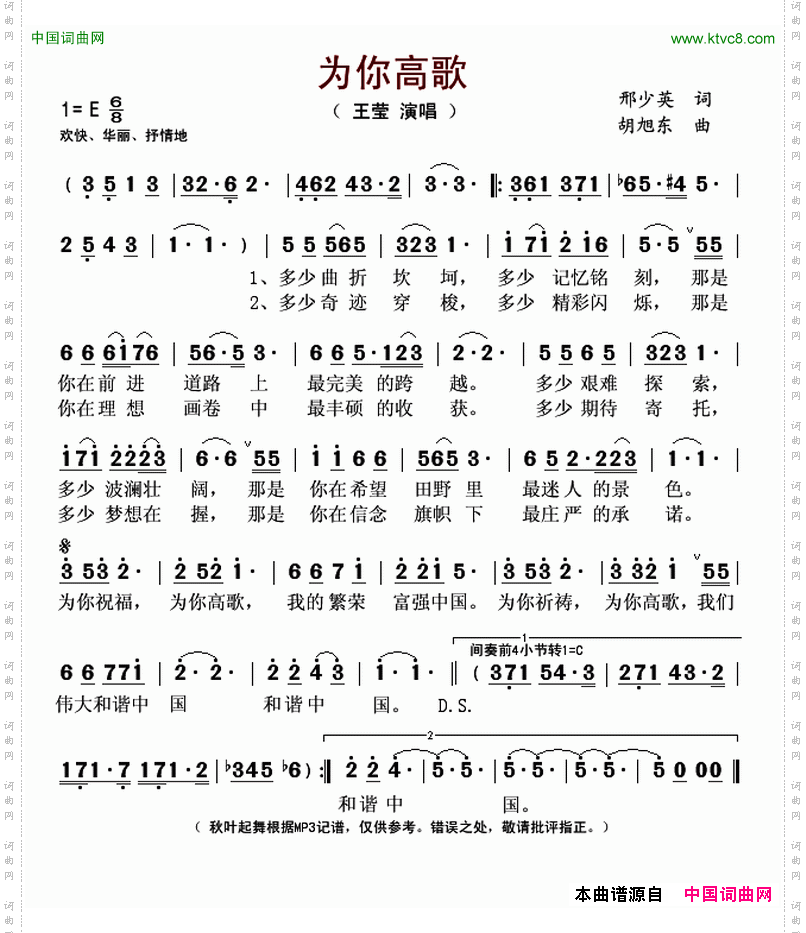 中国词曲网 www.ktvc8.com
为你高歌
（ 王莹 演唱 ）
1= E 6/8
邢少英 词
胡旭东 曲
欢快、华丽、抒情地
( 3 5 1 3 | 32·6 2· | 462 43·2 | 3·3· ‖: 361 371 | ♭65·#4 5· |
2 5 4 3 | 1·1· ) | 5 5 565 | 323 1· | 1 71 2 16 | 5·5 ˅55 |
1、多少曲折 坎 坷， 多少 记忆铭 刻， 那是
2、多少奇迹 穿 梭， 多少 精彩闪 烁， 那是
6 6 6176 | 56·5 3· | 6 6 5·123 | 2·2· | 5 5 6 5 | 323 1· |
你在前 进 道路 上 最完美 的跨 越。 多少 艰难 探 索，
你在理 想 画卷 中 最丰硕 的收 获。 多少 期待 寄 托，
171 2223 | 6·6 ˅55 | 1 1 6 6 | 565 3· | 6 5 2·223 | 1·1· |
多少 波澜壮 阔， 那是 你在希望 田野 里 最迷人 的景 色。
多少 梦想在 握， 那是 你在信念 旗帜 下 最庄严 的承 诺。
3 53 2· | 2 52 1· | 6 6 7 1 | 2 21 5· | 3 53 2· | 3 32 1 ˅55 |
为你祝福， 为你高歌， 我的繁荣 富强中国。 为你祈祷， 为你高歌，我们
1
间奏前4小节转1=C
6 6 771 | 2·2· | 2 2 4 3 | 1·1· ‖ ( 371 54·3 | 271 43·2 |
伟大和谐中 国 和谐中 国。 D.S.
2
171·7 171·2 | ♭345 ♭6 ) :‖ 2 2 4· | 5·5· | 5·5· | 5·5· | 5 0 00 ‖
和谐中 国。
（ 秋叶起舞根据MP3记谱，仅供参考。错误之处，敬请批评指正。）
本曲谱源自 中国词曲网